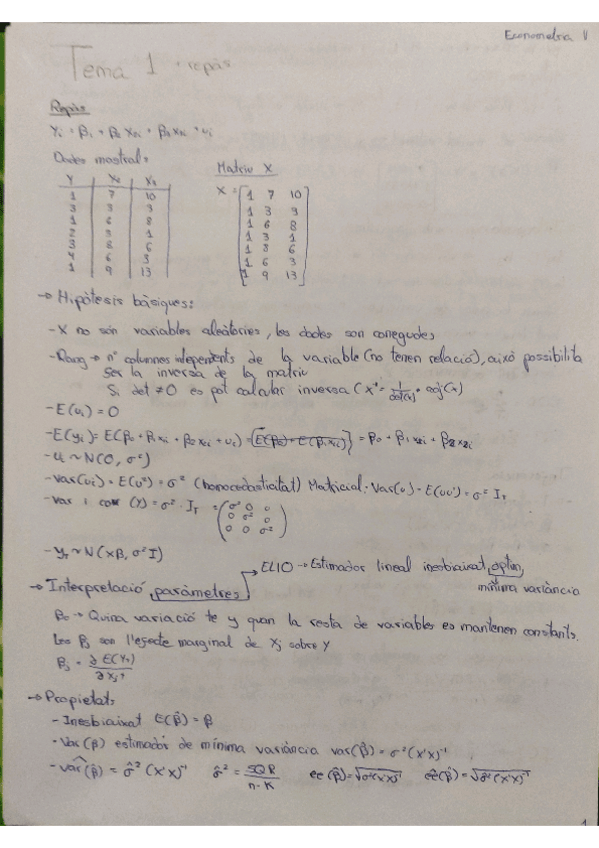 Econometria II
Tema 1 · repàs
Repàs
Yi = β1 + β2 X2i + β3 X3i + ui
Dades mostrals:
Matriu X
Y X2 X3
1 7 10
3 3 9
1 6 8
2 3 1
3 8 6
4 6 3
1 9 13
X = [1 7 10
1 3 9
1 6 8
1 3 1
1 8 6
1 6 3
1 9 13]
→ Hipòtesis bàsiques:
- X no són variables aleatòries, les dades son conegudes
- Rang → nº columnes independents de la variable (no tenen relació), això possibilita
ser la inversa de la matriu
Si det ≠ 0 es pot calcular inversa (X⁻¹ = 1/det(x) · adj(x)
- E(ui) = 0
- E(yi) = E(β0 + β1 x1i + β2 x2i + ui) = = β0 + β1 x1i + β2 x2i
- u ~ N(0, σ²)
- Var(ui) = E(u²) = σ² (homocedasticitat) Matricial: Var(u) = E(uu') = σ² IT
- Var i cov (Y) = σ² · IT = (σ² 0 0
0 σ² 0
0 0 σ²)
- yT ~ N(Xβ, σ² I)
ELIO → Estimador lineal inesbiaixat, òptim,
mínima variància
→ Interpretació paràmetres
β0 → Quina variació te y quan la resta de variables es mantenen constants.
Les βj son l'efecte marginal de Xj sobre Y
βj = ∂ E(Yi) / ∂ Xji
→ Propietats
- Inesbiaixat E(β̂) = β
- Var(β) estimador de mínima variància var(β̂) = σ² (X'X)⁻¹
- var̂(β̂) = σ̂² (X'X)⁻¹ σ̂² = SQR / n-K ee(β̂) = √σ²(X'X)⁻¹ eê(β̂) = √σ̂²(X'X)⁻¹
1